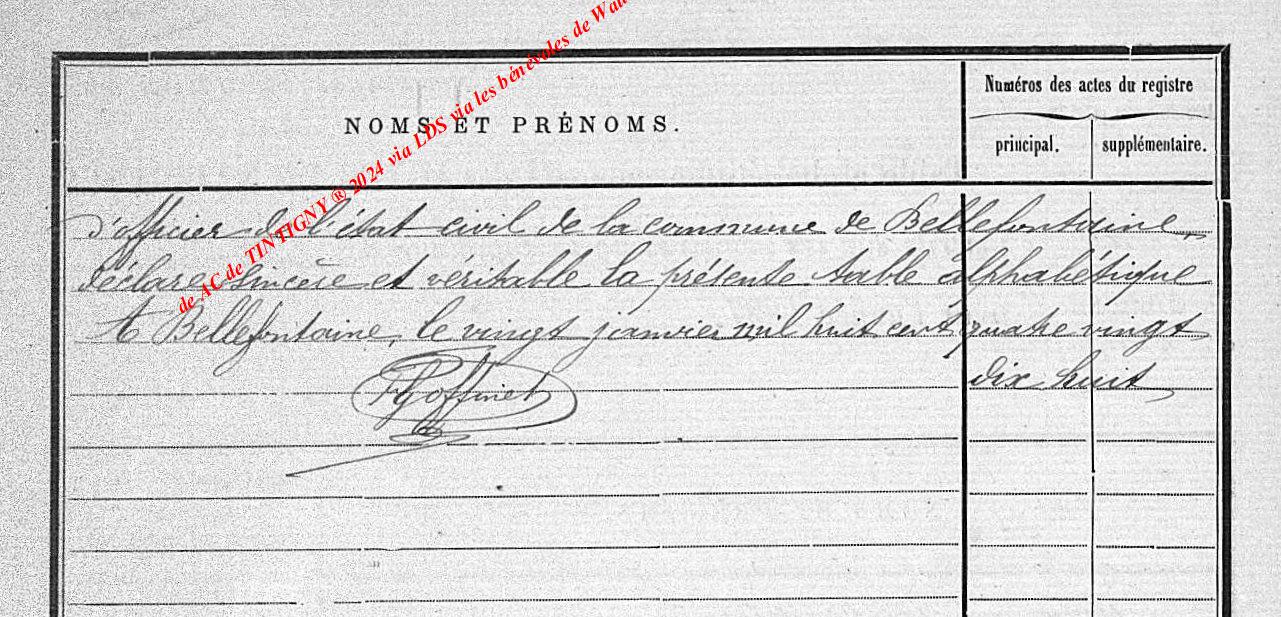 NOMS ET PRÉNOMS.
Numéros des actes du registre
principal.
supplémentaire.
de AC de TINTIGNY ® 2024 via LDS via les bénévoles de
L'officier de l'état civil de la commune de Bellefontaine
déclare sincère et véritable la présente table alphabétique
A Bellefontaine, le vingt janvier mil huit cent quatre vingt
dix huit
Goffinet